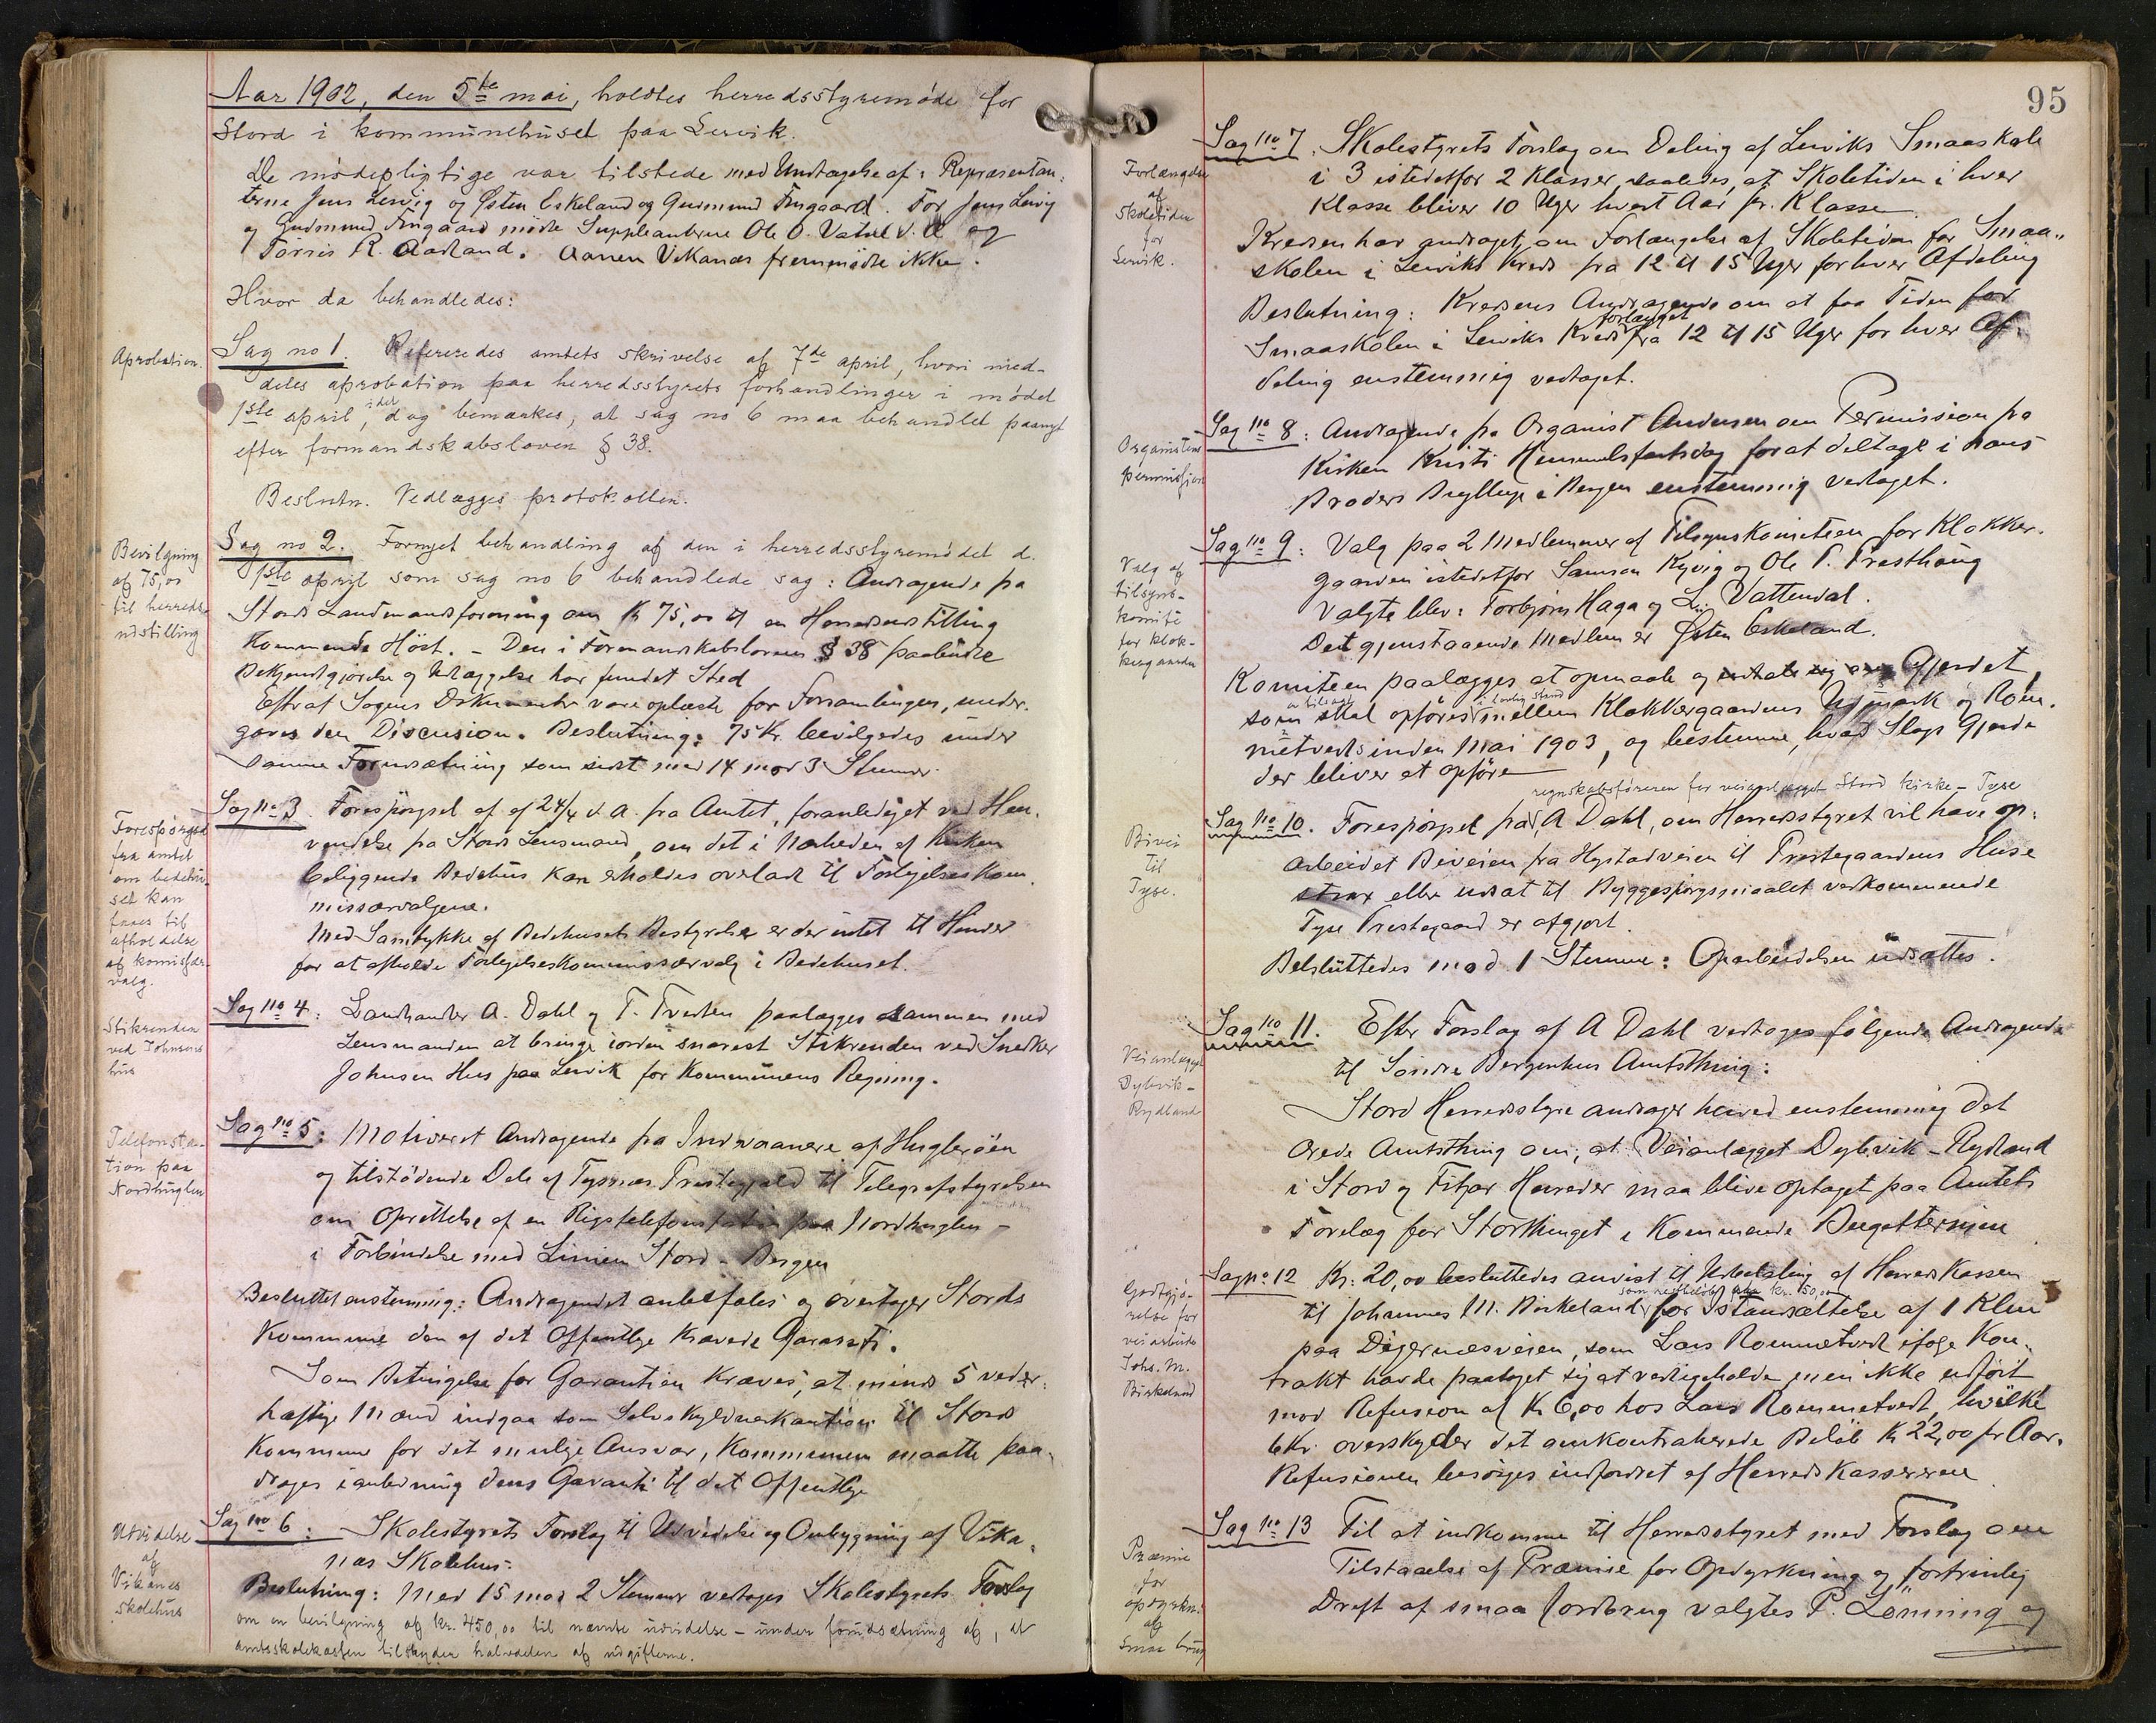 Aar 1902, den 5te mai, holdtes herredsstyremøde for
Stord i kommunehuset paa Lervik.
De mødepligtige var tilstede med Undtagelse af: Repræsentan-
terne Jens Lervig og Østen Eskeland og Gudmund Tingaard. For Jens Lervig
og Gudmund Tingaard mødte Suppleanterne Ole O. Valvel og
Torris R. Aadland. Aanen Vikanæs fremmødte ikke.
Hvor da behandledes:
Aprobation.
Sag no 1. Refereredes amtets skrivelse af 7de april, hvori med-
deles aprobation paa herredsstyrets forhandlinger i mødet
1ste april, idet dog bemærkes, at sag no 6 maa behandlet paanyt
efter formandskabsloven § 38.
Beslutn. Vedlægges protokollen.
Bevilgning
af 75,00
til herreds-
udstilling
Sag no 2. Fornyet behandling af den i herredsstyremødet d.
1ste april som sag no 6 behandlede sag: Andragende fra
Stords Landmandsforening om Kr 75,00 til en Herredsudstilling
kommende Høst. - Den i Formandskabslovens § 38 paabudte
Bekjendtgjørelse og Udlæggelse har fundet Sted
Efterat Sagens Dokumenter vare oplæste for Forsamlingen, under-
gaves den Discusion. Beslutning: 75 Kr. bevilgedes under
samme Forudsætning som sidst med 14 mod 3 Stemmer.
Forespørgsel
fra amtet
om bedehu-
set kan
faaes til
afholdelse
af komisær-
valg.
Sag no 3 Forespørgsel af 24/4 d. a. fra Amtet, foranlediget ved Hen-
vendelse fra Stords Lensmand, om det i Nærheden af Kirken
beliggende Bedehus kan erholdes overladt til Forligelseskom-
missærvalgene.
Med Samtykke af Bedehusets Bestyrelse er der intet til Hinder
for at afholde Forligelseskommissærvalg i Bedehuset.
Stikrenden
ved Johnsens
hus
Sag no 4: Landhandler A. Dahl og T. Tveten paalægges sammen med
Lensmanden at bringe iorden snarest Stikrenden ved Snedker
Johnsen Hus paa Lervik for Kommunens Regning.
Telefonsta-
tion paa
Nordhuglen
Sag no 5: Motiveret Andragende fra Indvaanere af Huglenøen
og tilstødende Dele af Tysnæs Prestegjeld til Telegrafstyrelsen
om Oprettelse af en Rigstelefonstation paa Nordhuglen -
i Forbindelse med Linien Stord - Bergen
Besluttet enstemmig: Andragendet anbefales og overtager Stords
Kommune den af det Offentlige krævede Garanti.
Som Betingelse for Garantien kræves, at mindst 5 veder-
hæftige Mænd indgaa som Selvskyldnerkaution til Stord
Kommune for det mulige Ansvar, Kommunen maatte paa-
drages ianledning dens Garanti til det Offentlige
Utvidelse
af
Vikanes
skolehus
Sag no 6: Skolestyrets Forslag til Udvidelse og Ombygning af Vika-
næs Skolehus:
Beslutning: Med 15 mod 2 Stemmer vedtages Skolestyrets Forslag
om en bevilgning af kr. 450,00 til nævnte udvidelse - under forudsætning af, at
amtsskolekassen tilskyder halvdelen af udgifterne.
95
Forlængelse
af
skoletiden
for
Lervik.
Sag no 7. Skolestyrets Forslag om Deling af Lerviks Smaaskole
i 3 istedetfor 2 Klasser, saaledes, at Skoletiden i hver
Klasse bliver 10 Uger hvert Aar pr. Klasse.
Kredsen har andraget om Forlængelse af Skoletiden for Smaa-
skolen i Lerviks Kreds fra 12 til 15 Uger for hver Afdeling
Beslutning: Kredsens Andragende om at faa Tiden for
Smaaskolen i Lerviks Kreds forlænget fra 12 til 15 Uger for hver Af-
deling enstemmig vedtaget.
Organistens
permission
Sag no 8: Andragende fra Organist Andersen om Permission fra
Kirken Kristi Himmelfartsdag forat deltage i hans
Broders Bryllup i Bergen enstemmig vedtaget.
Valg af
tilsyns-
komite
for klok-
kergaarden
Sag no 9: Valg paa 2 Medlemmer af Tilsynskomiteen for Klokker-
gaarden istedetfor Samson Kyvig og Ole T. Præsthaug
Valgte blev: Torbjørn Haga og L. Vattendal.
Det gjenstaaende Medlem er Østen Eskeland.
Komiteen paalægges at opmaale og Gjerdet
som skal opføres i lovlig stand mellem Klokkergaardens Udmark og Rom-
metvedts inden Mai 1903, og bestemme, hvad Slags Gjerde
der bliver at opføre
Bivei
til
Tyse.
regnskabsføreren for veianlægget Stord kirke - Tyse
Sag no 10. Forespørgsel fra A Dahl, om Herredsstyret vil have op-
arbeidet Biveien fra Hystadveien til Prestegaardens Huse
strax eller udsat til Byggespørgsmaalet vedkommende
Tyse Prestegaard er afgjort.
Besluttedes mod 1 Stemme: Oparbeidelsen udsættes.
Veianlægget
Dybvik-
Rydland
Sag no 11. Efter Forslag af A Dahl vedtages følgende Andragende
til Søndre Bergenhus Amtsthing:
Stord Herredsstyre andrager herved enstemmig det
ærede Amtsthing om, at Veianlægget Dybvik - Rydland
i Stord og Fitjar Herreder maa blive optaget paa Amtets
Forelæg for Storthinget i kommende Budgettermin.
Godtgjø-
relse for
veiarbeide
Johs. M.
Birkeland
Sag no 12 Kr: 20,00 besluttedes anvist til Udbetaling af Herredskassen
til Johannes M. Birkeland som restbeløb kr. 50,00 for Istandsættelse af 1 Klm
paa Digernæsveien, som Lars Rommetvedt ifølge Kon-
trakt havde paataget sig at vedligeholde men ikke udført
mod Refusion af Kr 6,00 hos Lars Rommetvedt, hvilke
6 Kr. overskyder det omkontraherede Beløb Kr 22,00 pr Aar.
Refusionen besørges indfordret af Herredskassereren
Præmie
for
opdyrkn.
af
smaa brug
Sag no 13 Til at indkomme til Herredsstyret med Forslag om
Tilstaaelse af Præmie for Opdyrkning og fortrinlig
Drift af smaa Jordbrug valgtes P. Lønning og